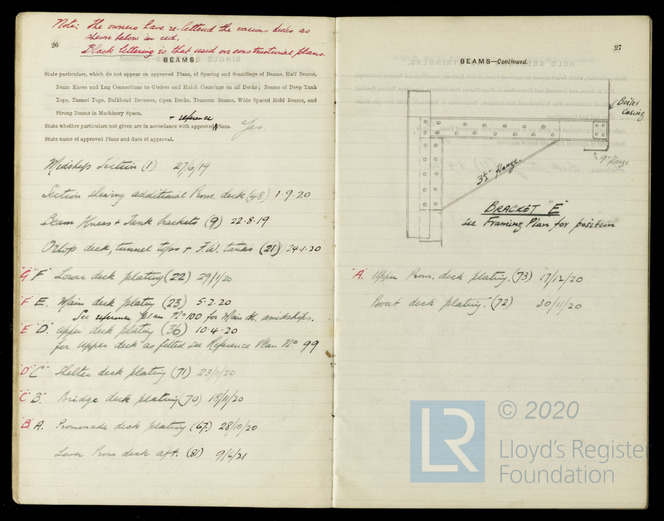 Note: The owners have re-lettered the various decks as
shown below in red.
Black lettering is that used on constructional plans.
26
BEAMS
State particulars, which do not appear on approved Plans, of Spacing and Scantlings of Beams, Half Beams,
Beam Knees and Lug Connections to Girders and Hatch Coamings on all Decks; Beams of Deep Tank
Tops, Tunnel Tops, Bulkhead Recesses, Open Decks, Transom Beams, Wide Spaced Hold Beams, and
Strong Beams in Machinery Space.
+ reference
State whether particulars not given are in accordance with approved Plans. Yes
State name of approved Plans and date of approval.
Midships Section (1) 27/6/19
Section showing additional Prom. deck (48) 1·9·20
Beam Knees + Tank brackets (9) 22·8·19
Orlop deck, tunnel tops + F.W. tanks (21) 24·1·20
"G" "F" Lower deck plating (22) 29/1/20
"F" E. Main deck plating (23) 5·2·20
See reference plan No 100 for Main dk. amidships.
"E" "D" Upper deck plating (36) 10·4·20
for upper deck as fitted see Reference Plan No 99
"D" "C" Shelter deck plating (71) 23/11/20
"C" "B" Bridge deck plating (70) 18/11/20
"B" A. Promenade deck plating (67) 28/10/20
Lower Prom deck aft. (81) 9/4/21
27
BEAMS—Continued.
Boiler
Casing
9" flange
3½" flange
BRACKET "E"
see Framing Plan for position
"A" Upper Prom. deck plating. (73) 17/12/20
Boat deck plating. (72) 30/11/20
LR
© 2020
Lloyd's Register
Foundation